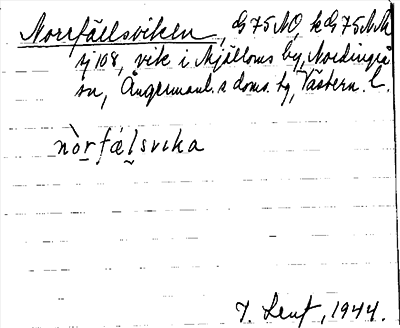 Norrfällsviken, G75NO, k G75NM
sj 108, vik i Mjälloms by, Nordingrå
sn, Ångermanl. s doms. tg, Västern. l.
nòrfálsvika
1944.